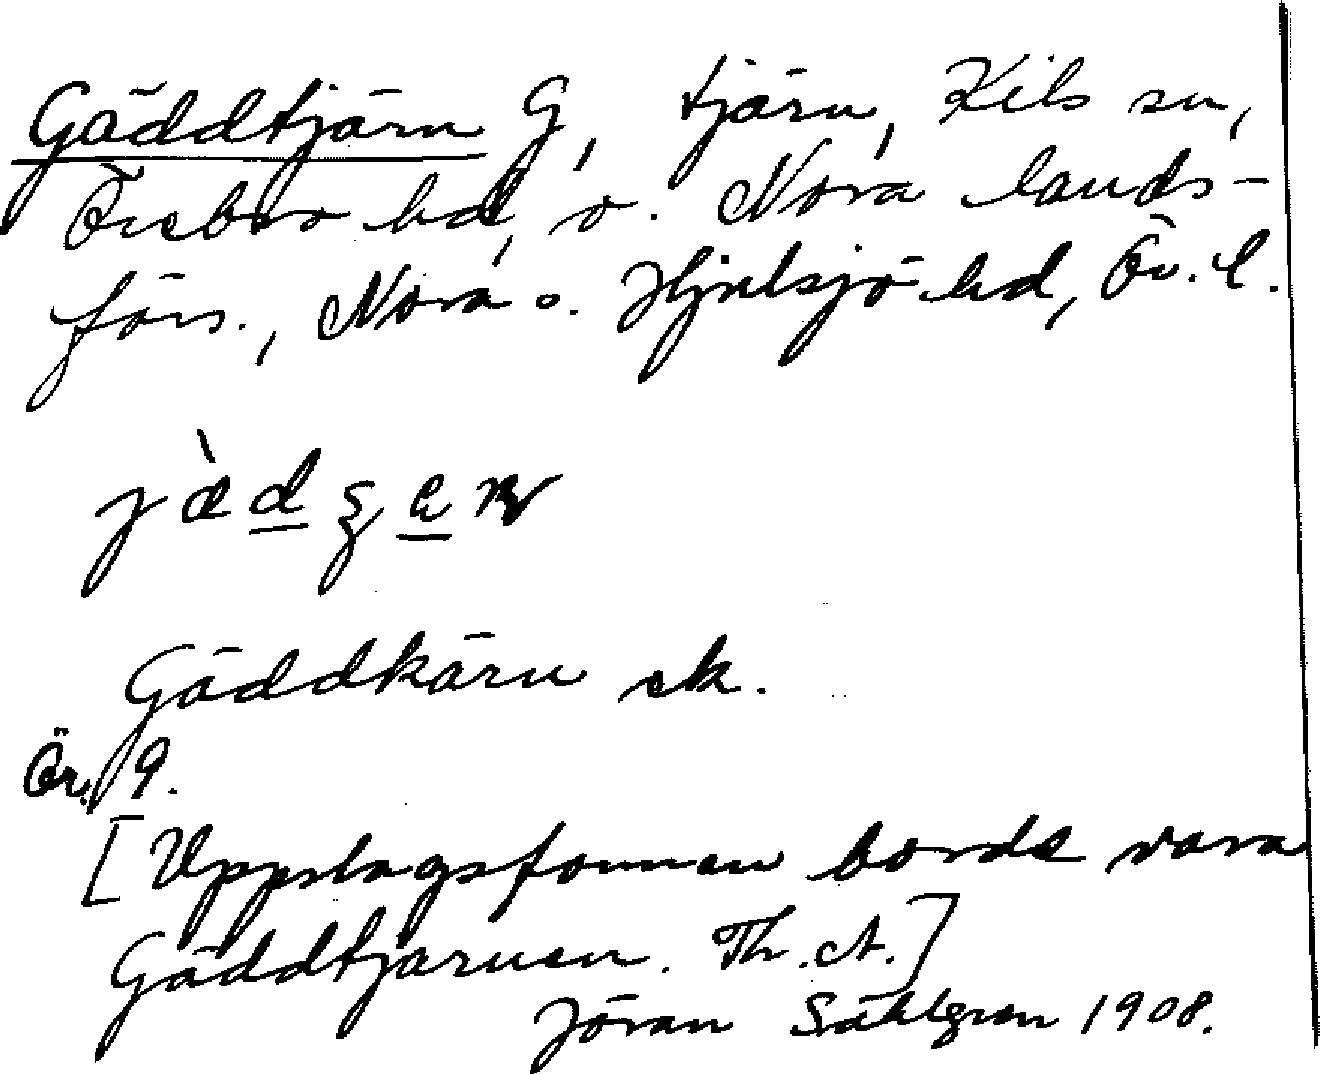 Gäddtjärn G, tjärn, Kils sn,
Örebro hd, o. Nora lands-
förs., Nora o. Hjulsjö hd, Ör. l.
Gäddkärn ek.
Ör. 9.
[Uppslagsformen borde vara
Gäddtjärnen. Th. A.]
Jöran Sahlgren 1908.